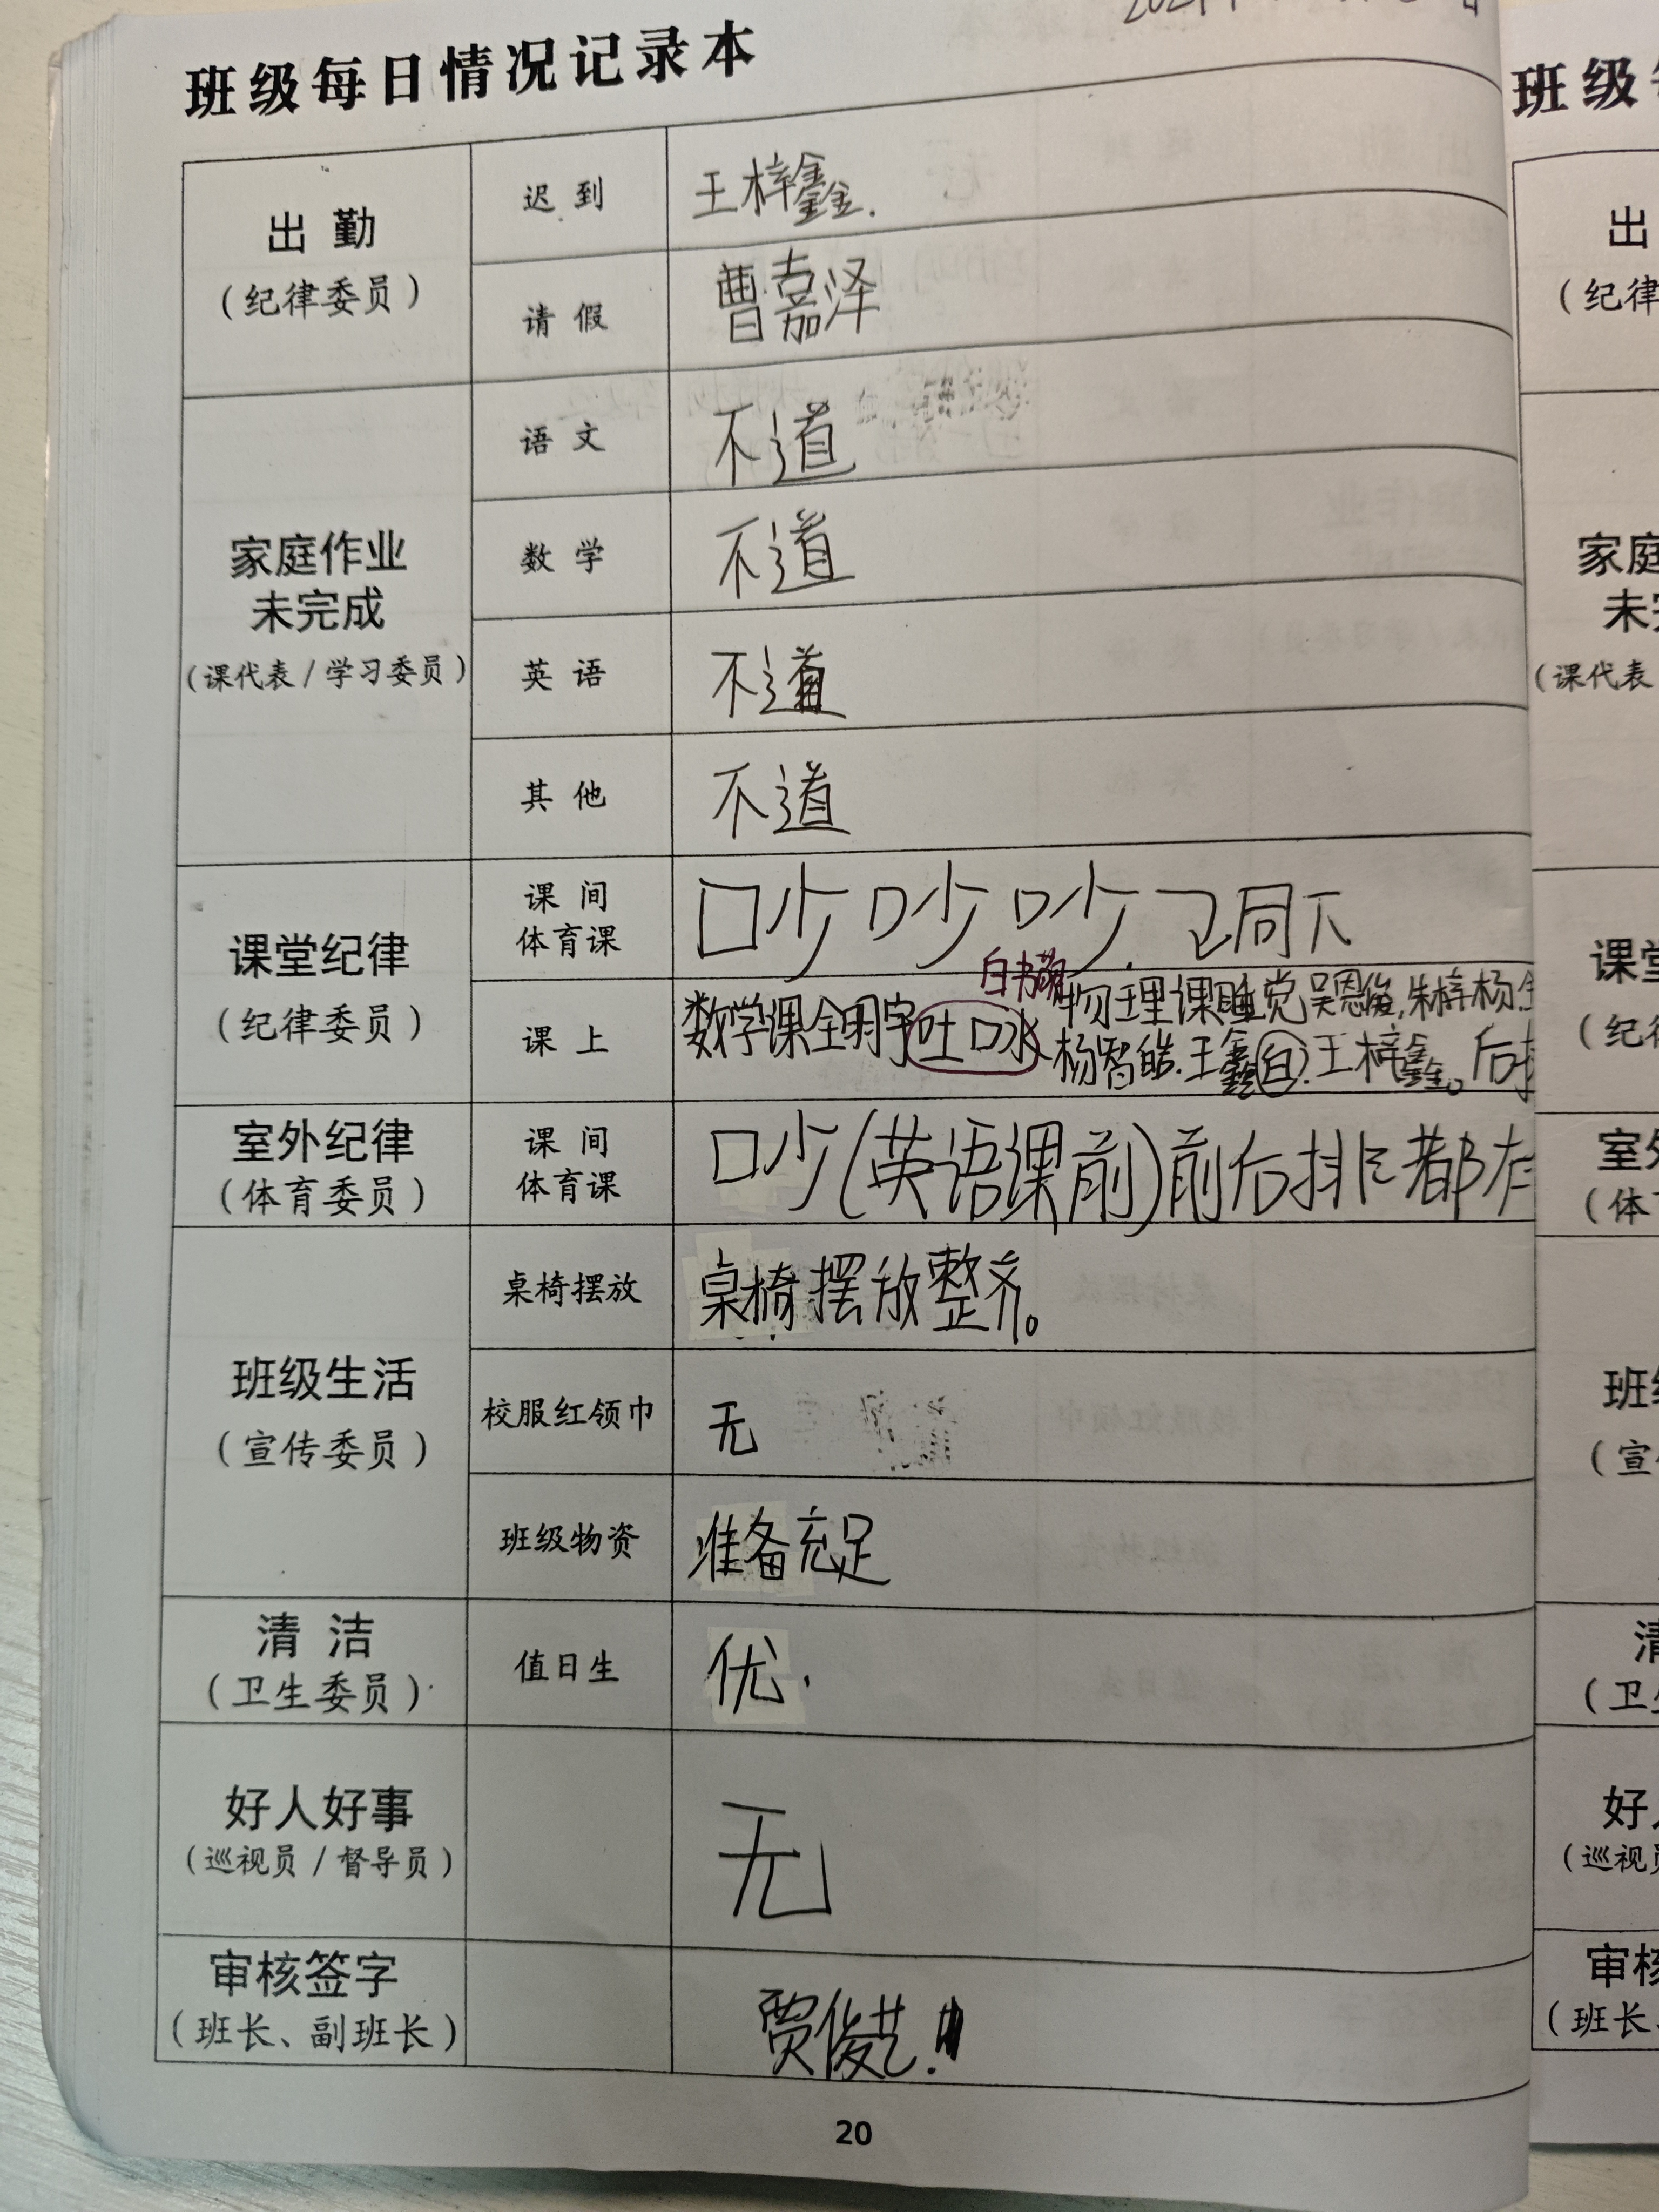 班级每日情况记录本
出勤
(纪律委员)
迟到
王梓鑫.
请假
曹嘉泽
家庭作业
未完成
(课代表/学习委员)
语文
不道
数学
不道
英语
不道
其他
不道
课堂纪律
(纪律委员)
课间
体育课
吵吵吵.
同下
课上
白书萌
数学课全明宇吐口水
物理课睡觉吴恩俊,朱梓杨
杨智皓.王鑫(自).王梓鑫。后
室外纪律
(体育委员)
课间
体育课
吵(英语课前)前后排都有
班级生活
(宣传委员)
桌椅摆放
桌椅摆放整齐。
校服红领巾
无
班级物资
准备充足
清洁
(卫生委员)
值日生
优.
好人好事
(巡视员/督导员)
无
审核签字
(班长、副班长)
贾俊艺!
20
班级
出
(纪律
家庭
未
(课代表
课堂
(纪
室外
(体
班
(宣
清
(卫
好
(巡视
审核
(班长